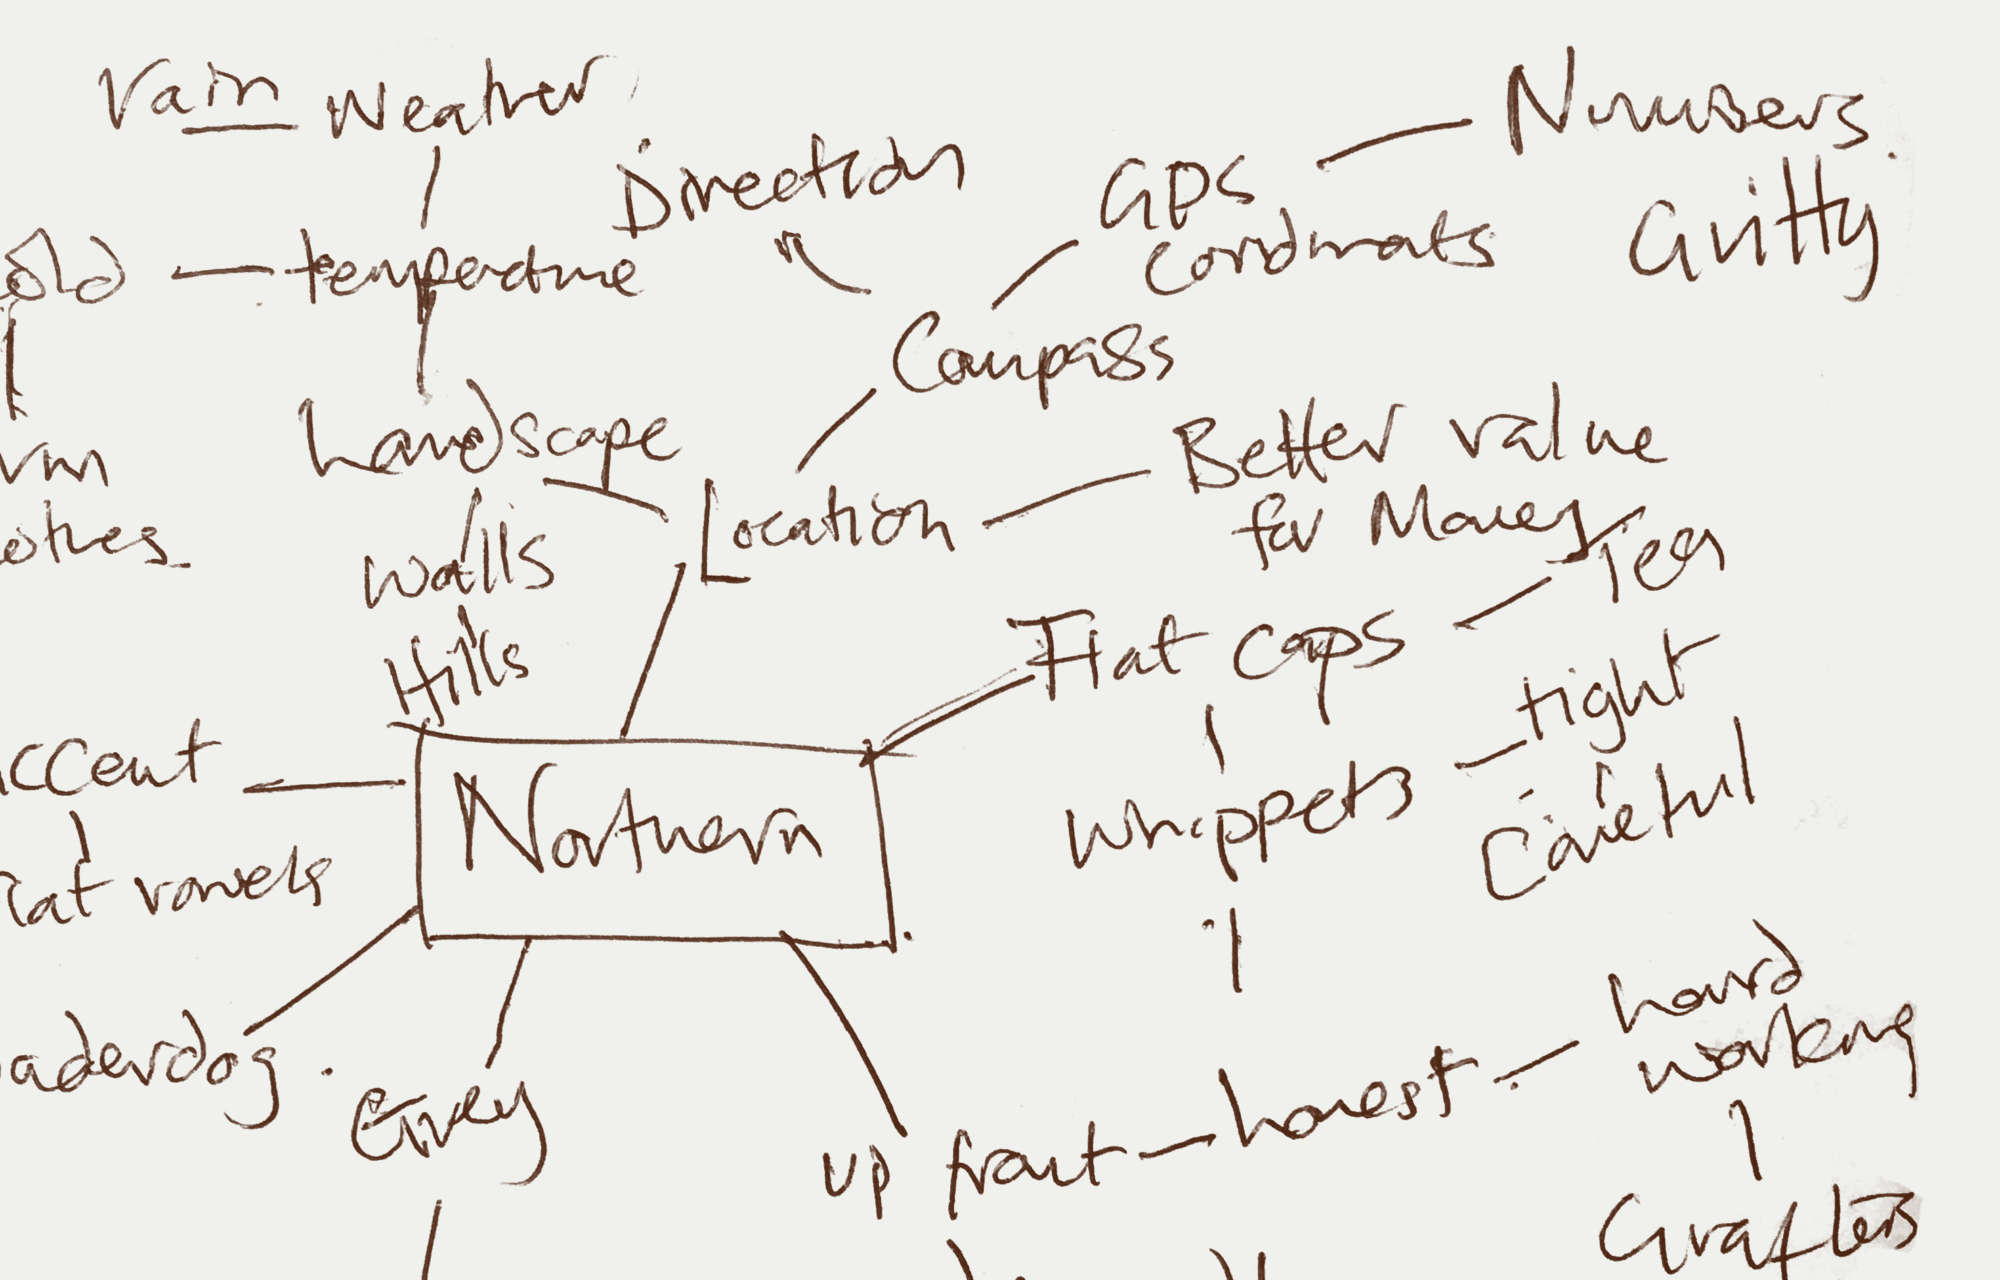 rain
Weather
Direction
GPS
cordinats
Numbers
Gritty
old
temperature
Compass
Landscape
Location
Better value
for Money
arm
othes
walls
Hills
Flat caps
Tea
tight
Careful
Whippets
ccent
lat vowels
Northern
aderdog
Grey
up front
honest
hard
working
Grafters